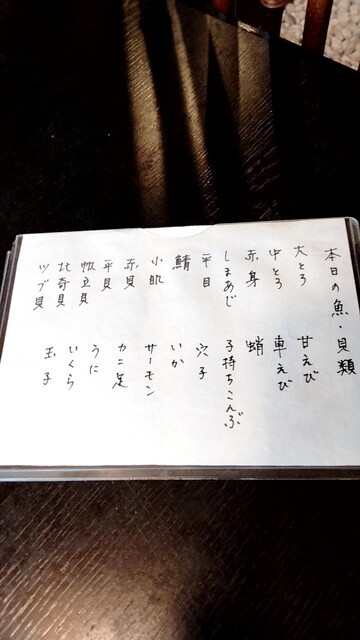 本日の魚・貝類
大とろ
中とろ
赤身
しまあじ
平目
鯖
小肌
赤貝
平貝
帆立貝
北寄貝
ツブ貝
甘えび
車えび
蛸
子持ちこんぶ
穴子
いか
サーモン
カニ足
うに
いくら
玉子